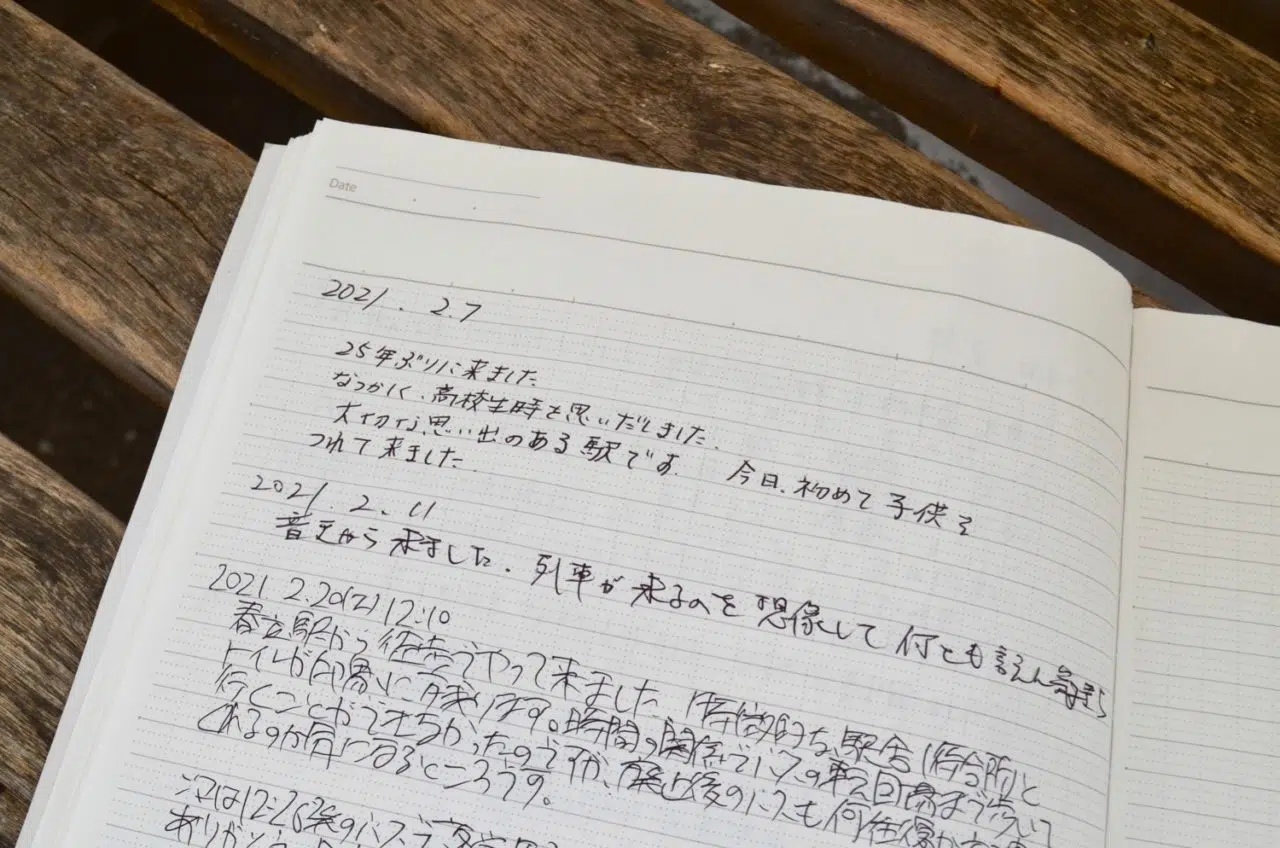 Date
2021. 2.7
25年ぶりに来ました
なつかしく、高校生時を思いだしました.
大切な思い出のある駅です. 今日、初めて子供を
つれて来ました.
2021. 2. 11
音更から来ました. 列車が来るのを想像して何とも言えん気持ち
2021 2.20(土)12:10
春立駅から徒歩でやって来ました。特徴的な駅舎(待合所)と
トイレが印象に
行くことができなかったのですが、後のバスも何往復か
くれるのか気になるところです。
12:26発のバスで